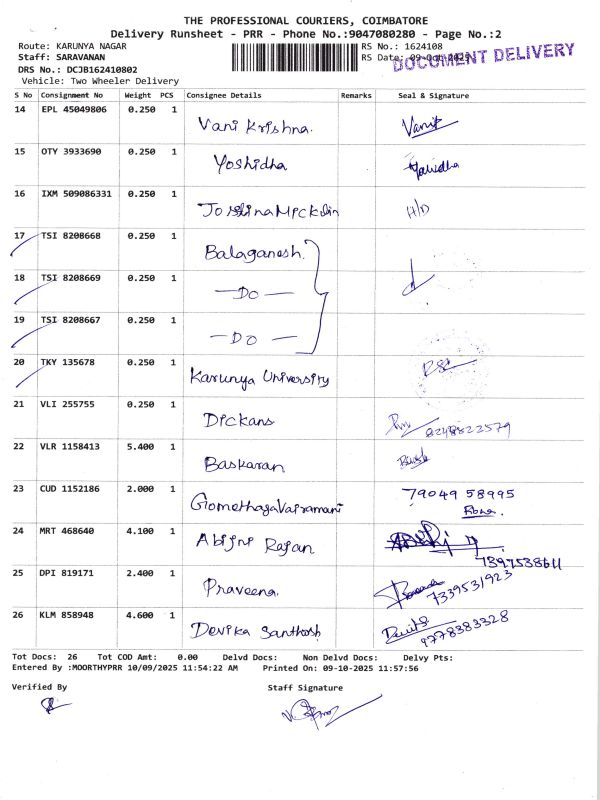 THE PROFESSIONAL COURIERS, COIMBATORE
Delivery Runsheet - PRR - Phone No.:9047080280 - Page No.:2
Route: KARUNYA NAGAR RS No.: 1624108
Staff: SARAVANAN RS Date: 09-Oct-2025
DOCUMENT DELIVERY
DRS No.: DCJB162410802
Vehicle: Two Wheeler Delivery
S No Consignment No Weight PCS Consignee Details Remarks Seal & Signature
14 EPL 45049806 0.250 1 Vani Krishna.
15 OTY 3933690 0.250 1 Yoshidha
16 IXM 509086331 0.250 1 H/D
17 TSI 8208668 0.250 1 Balaganesh.
18 TSI 8208669 0.250 1 — DO —
19 TSI 8208667 0.250 1 — DO —
20 TKY 135678 0.250 1 Karunya University
21 VLI 255755 0.250 1 Dickans 8248823579
22 VLR 1158413 5.400 1 Baskaran
23 CUD 1152186 2.000 1 79049 58995
24 MRT 468640 4.100 1 Rajan
25 DPI 819171 2.400 1 Praveena. 7339531923
26 KLM 858948 4.600 1 Devika Santhosh 9778383328
Tot Docs: 26 Tot COD Amt: 0.00 Delvd Docs: Non Delvd Docs: Delvy Pts:
Entered By :MOORTHYPRR 10/09/2025 11:54:22 AM Printed On: 09-10-2025 11:57:56
Verified By Staff Signature